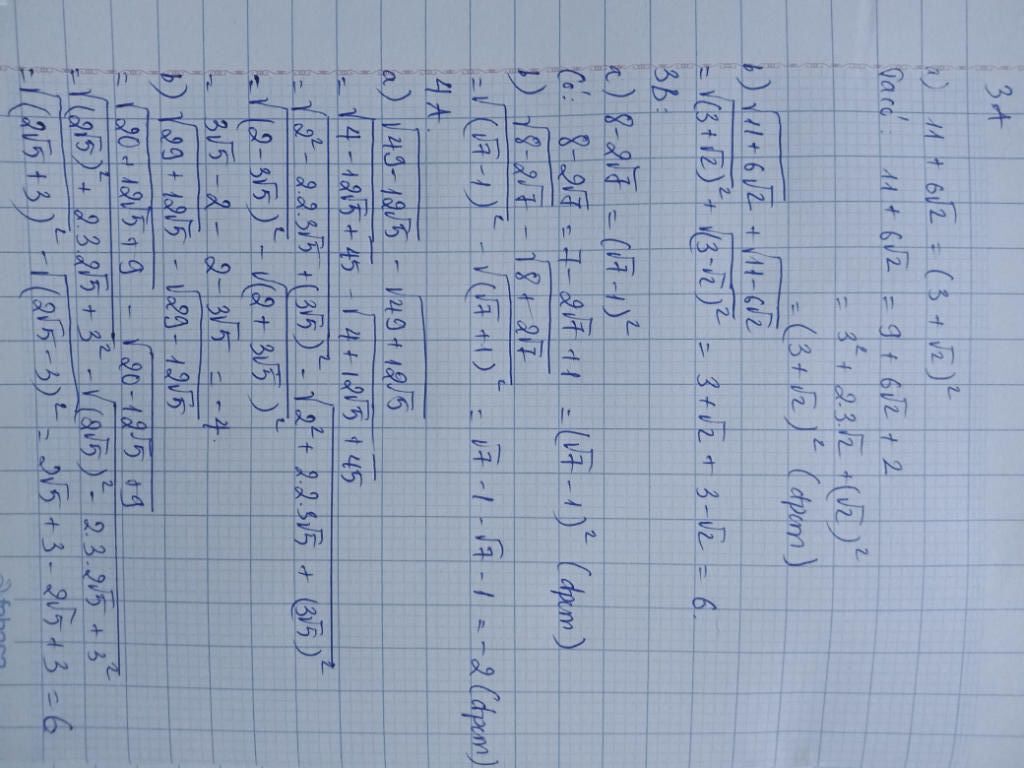 3A
a) 11 + 6√2 = (3 + √2)²
Ta có: 11 + 6√2 = 9 + 6√2 + 2
= 3² + 2.3.√2 + (√2)²
= (3 + √2)² (đpcm)
b) √(11 + 6√2) + √(11 - 6√2)
= √(3 + √2)² + √(3 - √2)² = 3 + √2 + 3 - √2 = 6.
3B:
a) 8 - 2√7 = (√7 - 1)²
Có: 8 - 2√7 = 7 - 2√7 + 1 = (√7 - 1)² (đpcm)
b) √(8 - 2√7) - √(8 + 2√7)
= √(√7 - 1)² - √(√7 + 1)² = √7 - 1 - √7 - 1 = -2 (đpcm)
4A.
a) √(49 - 12√5) - √(49 + 12√5)
= √(4 - 12√5 + 45) - √(4 + 12√5 + 45)
= √(2² - 2.2.3√5 + (3√5)²) - √(2² + 2.2.3√5 + (3√5)²)
= √(2 - 3√5)² - √(2 + 3√5)²
= 3√5 - 2 - 2 - 3√5 = -4
b) √(29 + 12√5) - √(29 - 12√5)
= √(20 + 12√5 + 9) - √(20 - 12√5 + 9)
= √((2√5)² + 2.3.2√5 + 3²) - √((2√5)² - 2.3.2√5 + 3²)
= √(2√5 + 3)² - √(2√5 - 3)² = 2√5 + 3 - 2√5 + 3 = 6